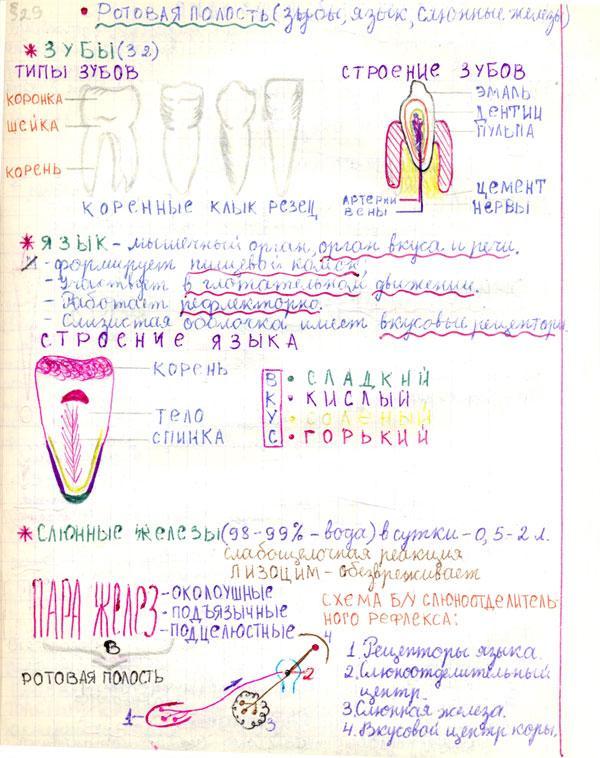 §29 • РОТОВАЯ ПОЛОСТЬ (зубы, язык, слюнные железы)
* ЗУБЫ (32)
ТИПЫ ЗУБОВ
СТРОЕНИЕ ЗУБОВ
КОРОНКА
ШЕЙКА
КОРЕНЬ
ЭМАЛЬ
ДЕНТИН
ПУЛЬПА
ЦЕМЕНТ
НЕРВЫ
АРТЕРИИ
ВЕНЫ
КОРЕННЫЕ КЛЫК РЕЗЕЦ
* ЯЗЫК - мышечный орган, орган вкуса и речи.
- формирует пищевой комок,
- Участвует в глотательном движении.
- Работает рефлекторно.
- Слизистая оболочка имеет вкусовые рецепторы.
СТРОЕНИЕ ЯЗЫКА
КОРЕНЬ
ТЕЛО
СПИНКА
ВКУС
• СЛАДКИЙ
• КИСЛЫЙ
• СОЛЕНЫЙ
• ГОРЬКИЙ
* СЛЮННЫЕ ЖЕЛЕЗЫ (98-99% - вода) в сутки - 0,5-2 л.
слабощелочная реакция
ЛИЗОЦИМ - обезвреживает
ПАРА ЖЕЛЕЗ
- ОКОЛОУШНЫЕ
- ПОДЪЯЗЫЧНЫЕ
- ПОДЧЕЛЮСТНЫЕ
В
РОТОВАЯ ПОЛОСТЬ
СХЕМА Б/У СЛЮНООТДЕЛИТЕЛЬ-
НОГО РЕФЛЕКСА:
1. Рецепторы языка.
2. Слюноотделительный
центр.
3. Слюнная железа.
4. Вкусовой центр коры.
1
2
3
4